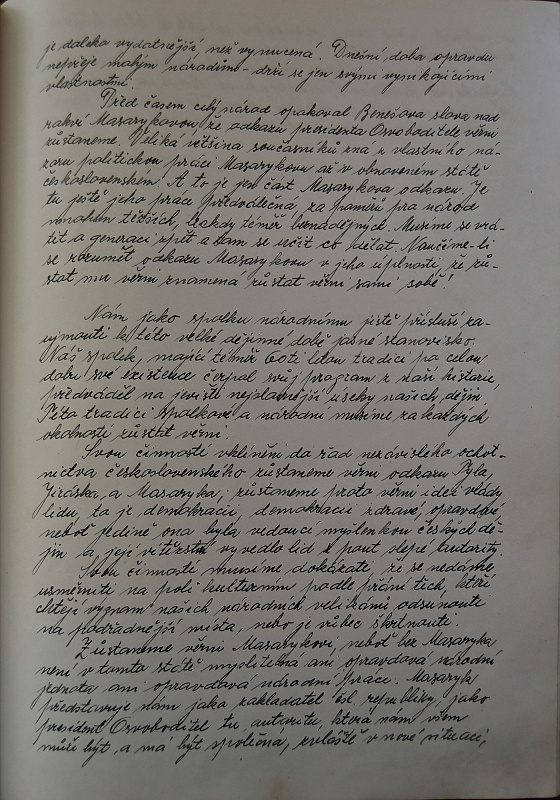 je daleko vydatnější, než vynucená. Dnešní doba opravdu
nepřeje malým národům - drží se jen svými vynikajícími
vlastnostmi.
Před časem celý národ opakoval Benešova slova nad
rakví Masarykovou, že odkazu presidenta Osvoboditele věrni
zůstaneme. Veliká většina současníků zná z vlastního ná-
zoru politickou práci Masarykovu až v obnoveném státě
československém. A to je jen část Masarykova odkazu. Je
tu ještě jeho práce předválečná, za poměrů pro národ
mnohem těžších, leckdy téměř beznadějných. Musíme se vrá-
tit o generaci zpět a tam se učit co dělat. Naučíme-li
se rozumět odkazu Masarykovu v jeho úplnosti, že zů-
stat mu věrni znamená zůstat věrni sami sobě!
Nám jako spolku národnímu jistě přísluší za-
ujmouti k této velké dějinné době jasné stanovisko.
Náš spolek, mající téměř 60ti letou tradici po celou
dobu své existence čerpal svůj program z naší historie,
předváděl na jevišti nejslavnější úseky našich dějin.
Této tradici spolkové a národní musíme za každých
okolností zůstat věrni.
Svou činností vklíněni do řad nezávislého ochot-
nictva československého zůstaneme věrni odkazu Tyla,
Jiráska, a Masaryka, zůstaneme proto věrni ideí vlády
lidu, to je demokracii, demokracii zdravé, opravdové,
neboť jedině ona byla vedoucí myšlenkou českých dě-
jin a její vítězství vyvedlo lid z pout slepé autority.
Svou činností musíme dokázati, že se nedáme
usměrniti na poli kulturním podle přání těch, kteří
chtějí význam našich národních velikánů odsunouti
na podřadnější místa, nebo je vůbec škrtnouti.
Zůstaneme věrni Masarykovi, neboť bez Masaryka
není v tomto státě myslitelna ani opravdová národní
jednota ani opravdová národní práce. Masaryk
představuje nám jako zakladatel čsl. republiky, jako
president Osvoboditel tu autoritu, která nám všem
může být a má být společná, zvláště v nové situaci,